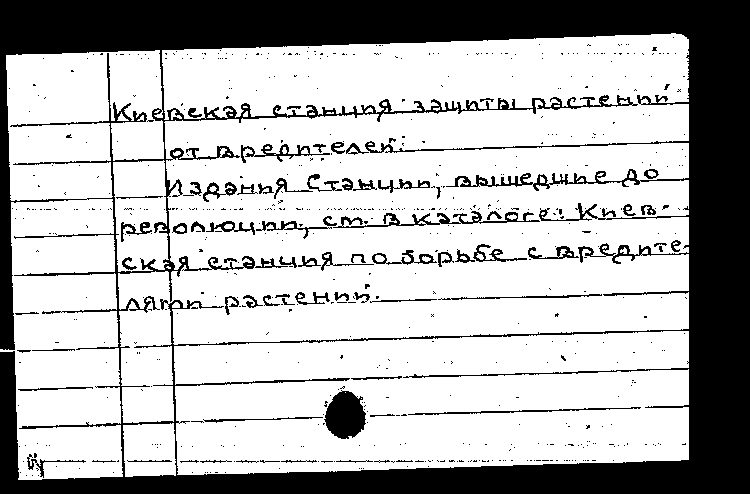 Киевская станция защиты растений
от вредителей.
Издания Станции, вышедшие до
революции, см. в каталоге: Киев-
ская станция по борьбе с вредите-
лями растений.